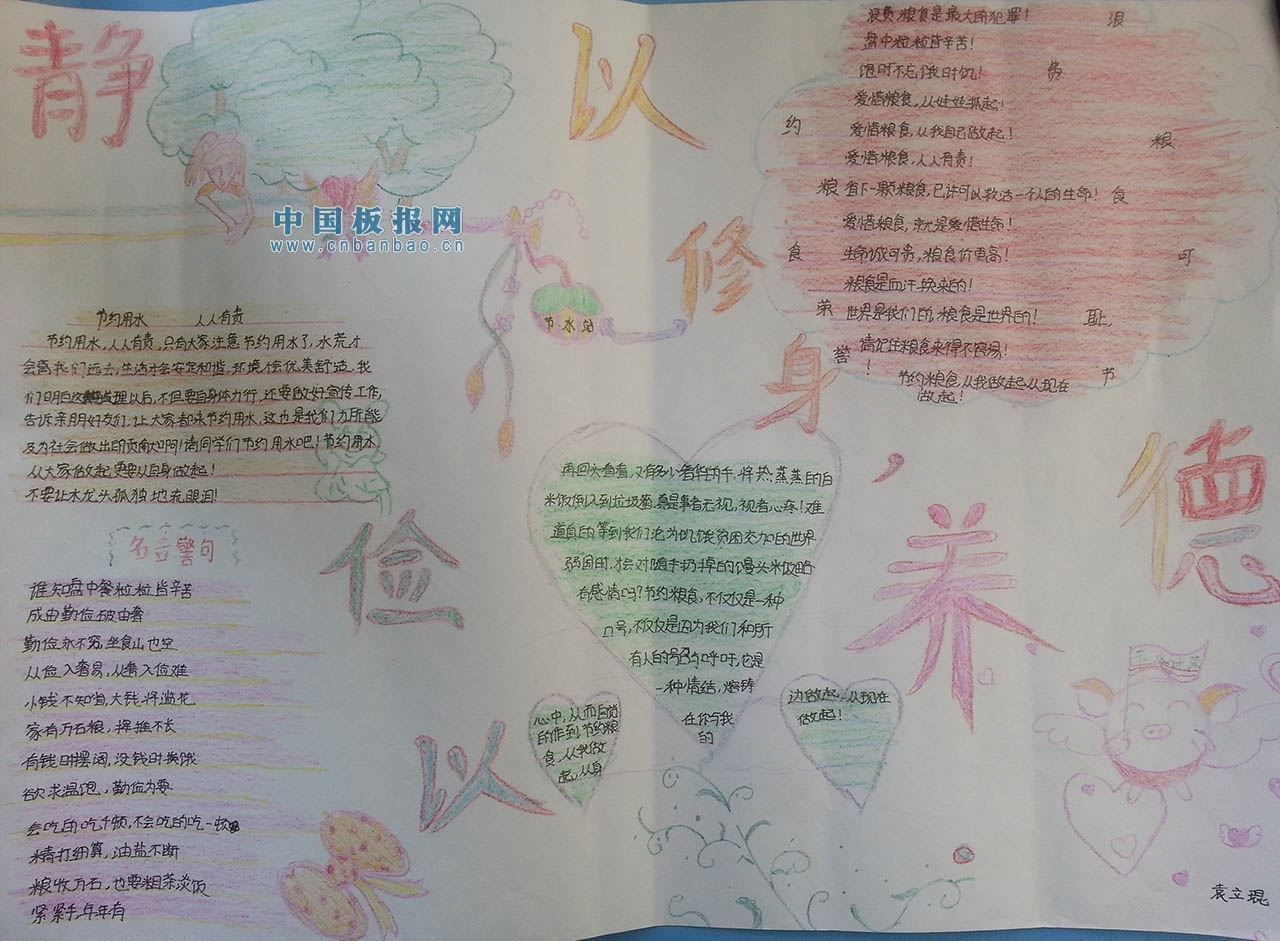 静以修身，
俭以养德
中国板报网
www.cnbanbao.cn
节水
浪费粮食是最大的犯罪！
盘中粒粒皆辛苦！
饱时不忘饿时饥！
爱惜粮食，从娃娃抓起！
爱惜粮食，从我自己做起！
爱惜粮食，人人有责！
省下一颗粮食，已许可以救活一个人的生命！
爱惜粮食，就是爱惜生命！
生命诚可贵，粮食价更高！
粮食是血汗换来的！
世界是我们的，粮食是世界的！
请记住粮食来得不容易！
节约粮食，从我做起，从现在
做起！
节约粮食荣誉！
浪费粮食可耻，
节约用水 人人有责
节约用水，人人有责，只有大家注意节约用水了，水荒才
会离我们远去，生活才会安定和谐，环境会优美舒适。我
们明白这道理以后，不但要自身体力行，还要做好宣传工作，
告诉亲朋好友们，让大家都来节约用水，这也是我们力所能
及为社会做出的贡献啊！请同学们节约用水吧！节约用水
从大家做起更要以自身做起！
不要让水龙头孤独地流眼泪！
名言警句
谁知盘中餐粒粒皆辛苦
成由勤俭破由奢
勤俭永不穷，坐食山也空
从俭入奢易，从奢入俭难
小钱不知省，大钱将滥花
家有万石粮，挥霍不长
有钱时摆阔，没钱时挨饿
欲求温饱，勤俭为要
会吃的吃千顿，不会吃的吃一顿
精打细算，油盐不断
粮收万石，也要粗茶淡饭
紧紧手，年年有
再回头看看，又有多少奢华的手，将热蒸蒸的白
米饭倒入到垃圾箱。真是事者无视，视者心疼！难
道真的等到我们沦为饥饿贫困交加的世界
弱国时，才会对随手扔掉的馒头米饭略
有感情吗？节约粮食，不仅仅是一种
口号，不仅仅是因为我们和所
有人的号召与呼吁，它是
一种情结，熔铸
在你与我
的
心中，从而自觉
的作到节约粮
食，从我做
起，从身
边做起，从现在
做起！
袁立琨